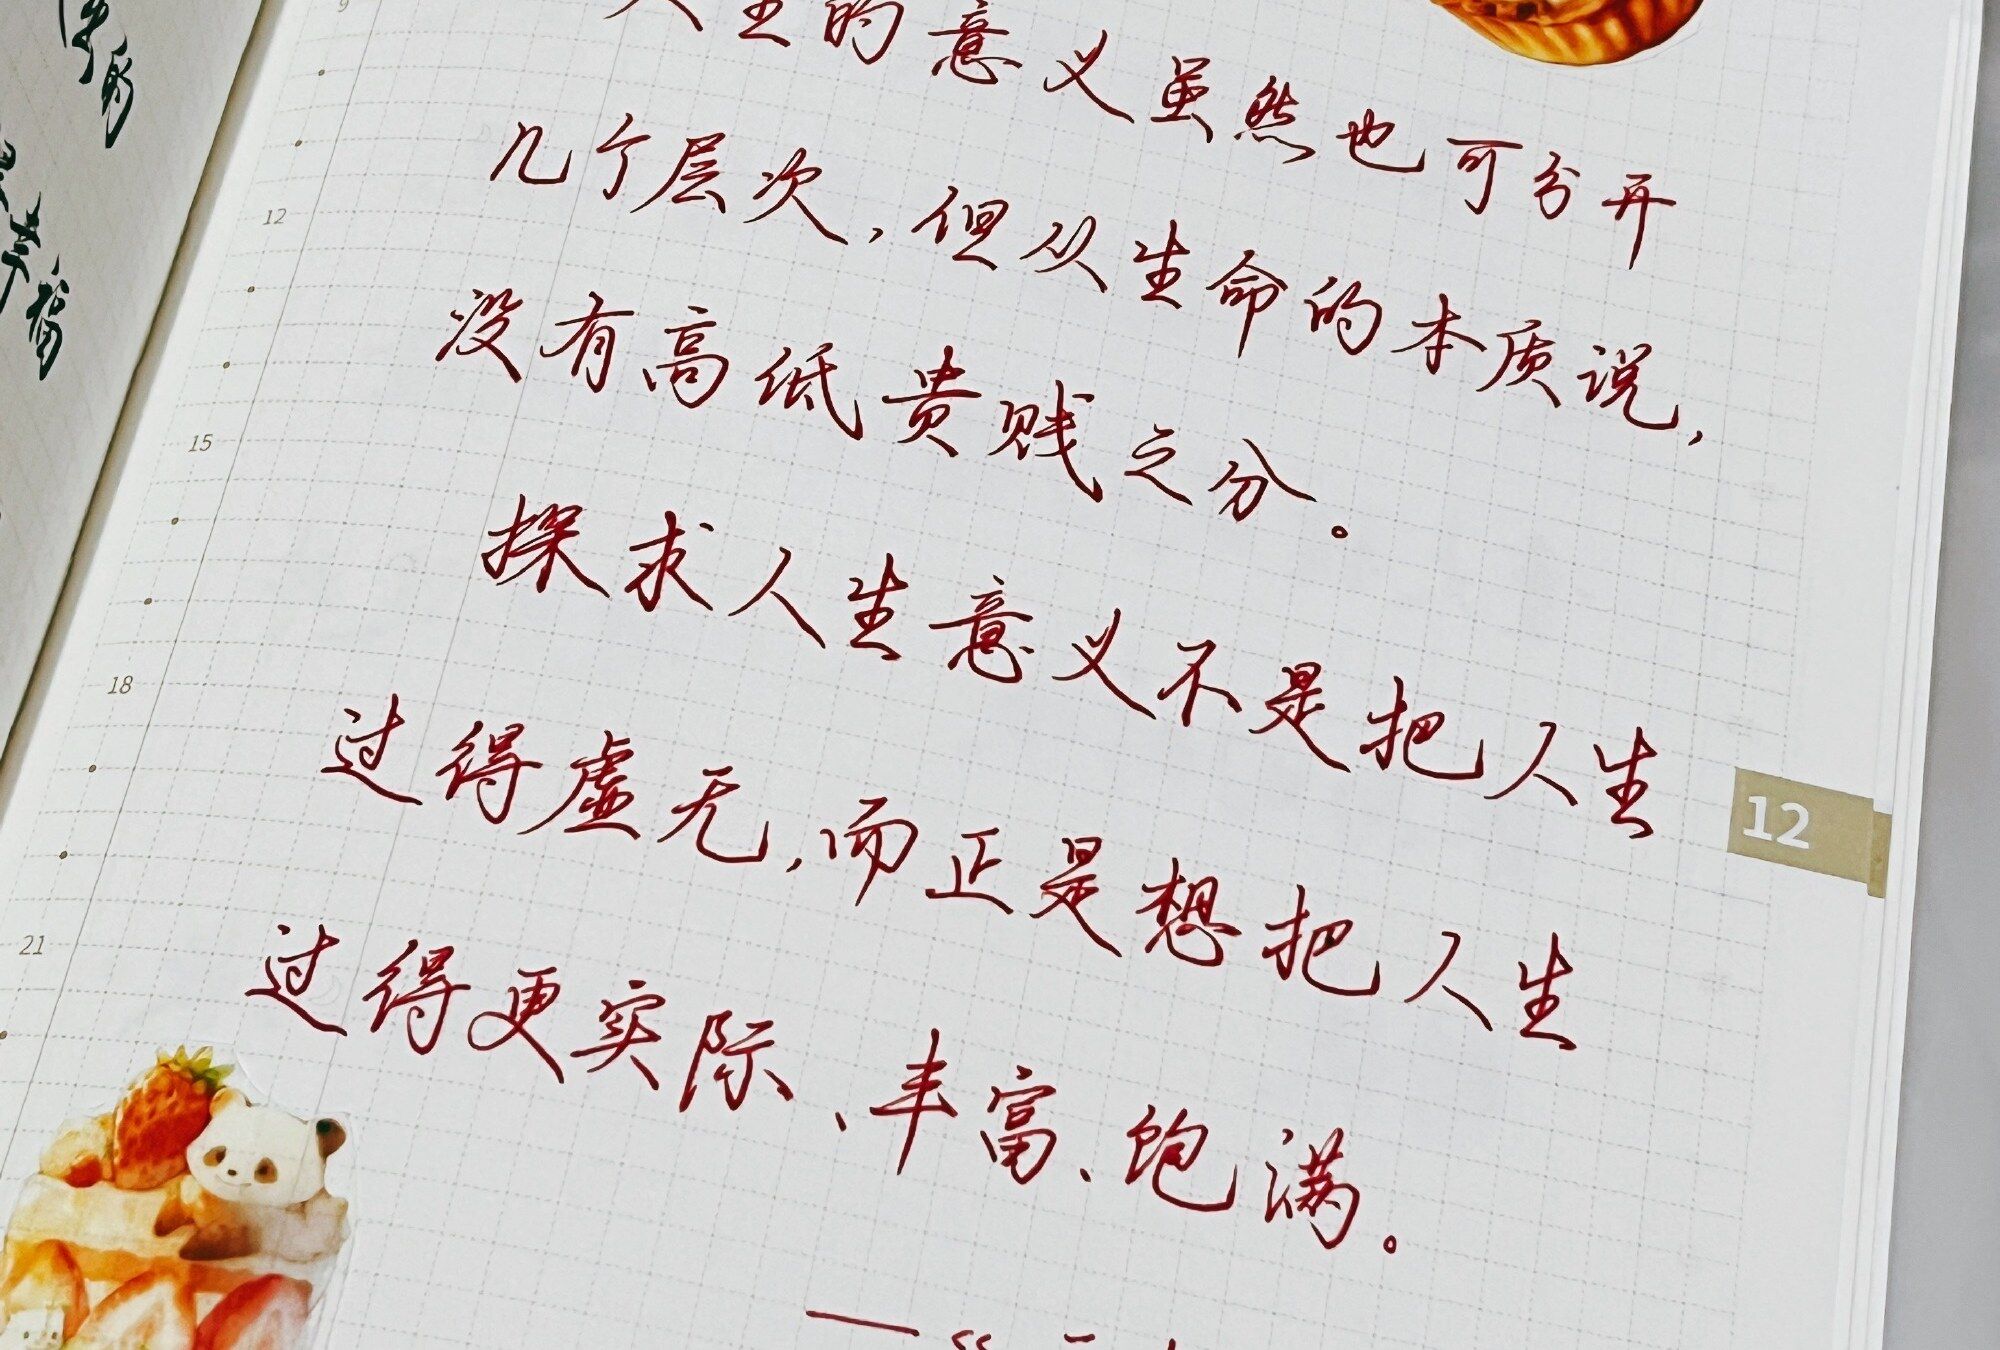 9
人生的意义虽然也可分开
几个层次，但从生命的本质说，
12
没有高低贵贱之分。
15
探求人生意义不是把人生
18
过得虚无，而正是想把人生
12
过得更实际、丰富、饱满。
21